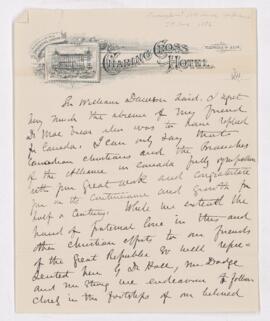 CHARING CROSS
HOTEL.
Sir William Dawson said. I regret
very much the absence of my friend
Dr Mac Vicar who was to have replied
for Canada. I can only say that
Canadian Christians and the branches
of the Alliance in Canada fully sympathise
with your great work and congratulate
you on its continuance and growth for
half a century. While we extend the
hand of fraternal love in this and
other Christian efforts to our friends
of the Great Republic so well repre-
sented here by Dr Hall, Mr Dodge
and Mr Strong we endeavour to follow
closely in the footsteps of our beloved